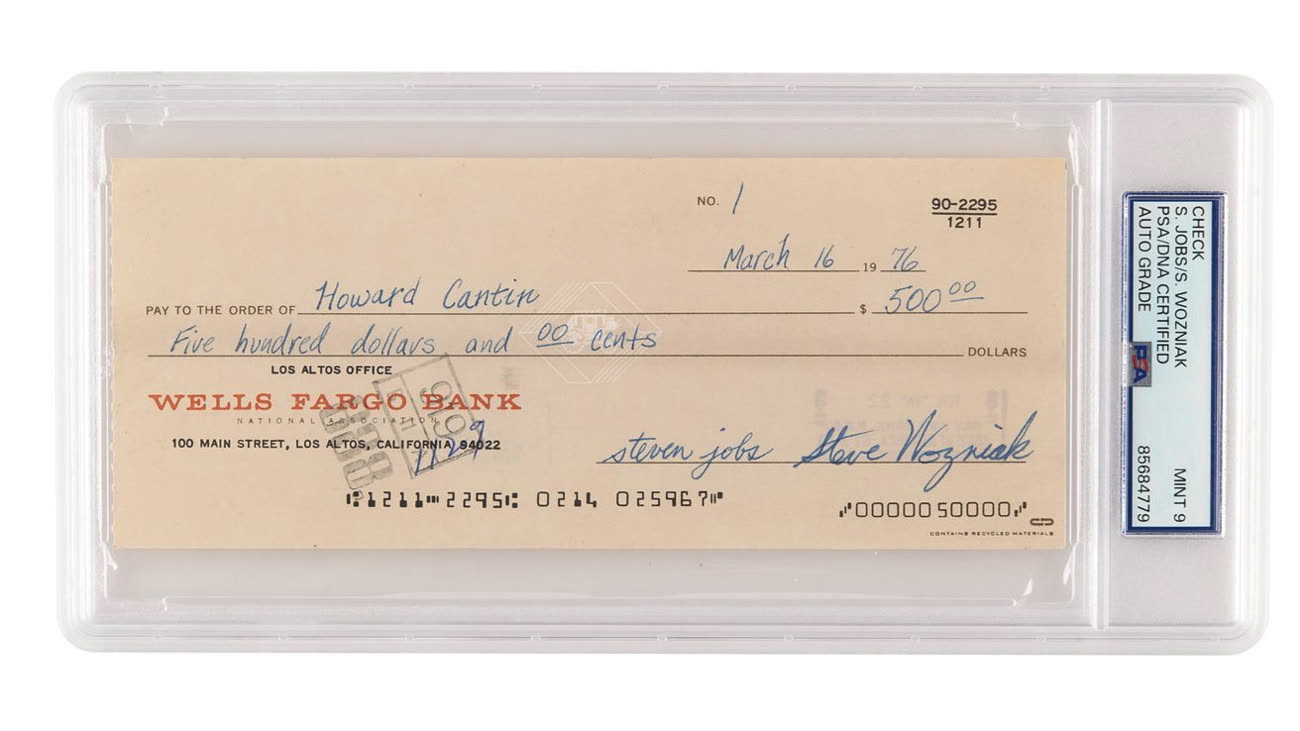 NO. 1
90-2295
1211
March 16 1976
PAY TO THE ORDER OF Howard Cantin $ 500 00
Five hundred dollars and 00 cents DOLLARS
LOS ALTOS OFFICE
WELLS FARGO BANK
NATIONAL ASSOCIATION
100 MAIN STREET, LOS ALTOS, CALIFORNIA 94022
1129
steven jobs Steve Wozniak
1211 2295 0214 025967
0000050000
CONTAINS RECYCLED MATERIALS
CHECK
S. JOBS/S. WOZNIAK MINT 9
PSA/DNA CERTIFIED
AUTO GRADE 85684779
PSA